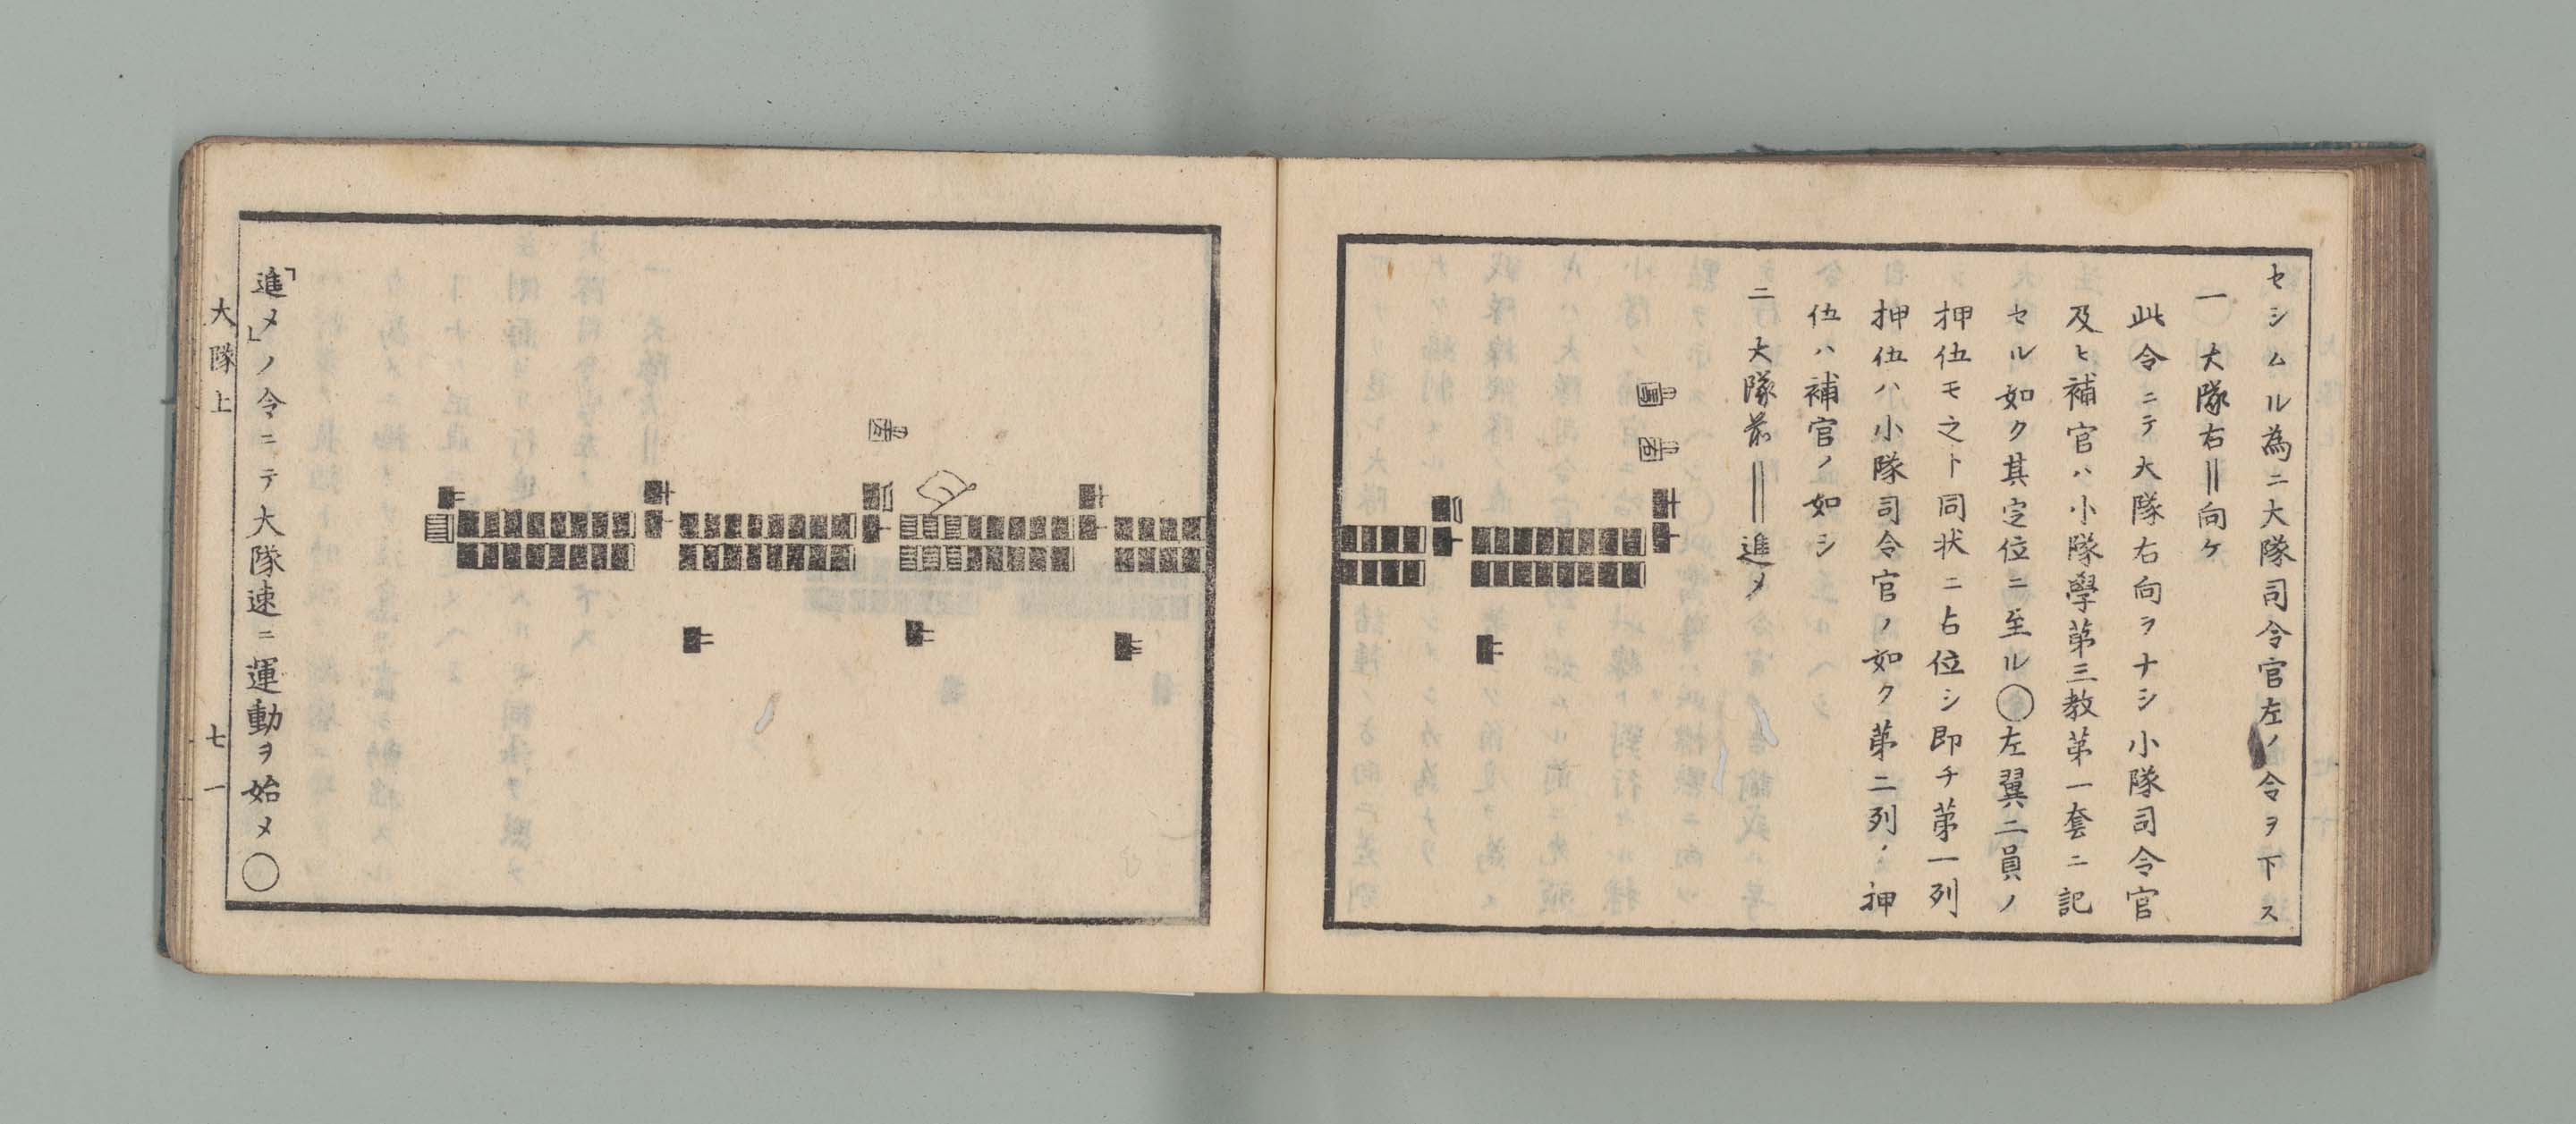 セシムル為ニ大隊司令官左ノ令ヲ下ス
一 大隊右‖向ケ
此令ニテ大隊右向ヲナシ小隊司令官
及ヒ補官ハ小隊學第三教第一套ニ記
セル如ク其定位ニ至ル○左翼二員ノ
押伍モ之ト同状ニ占位シ即チ第一列
押伍ハ小隊司令官ノ如ク第二列ノ押
伍ハ補官ノ如シ
二 大隊前‖進メ
「進メ」ノ令ニテ大隊速ニ運動ヲ始メ○
大隊上 七一